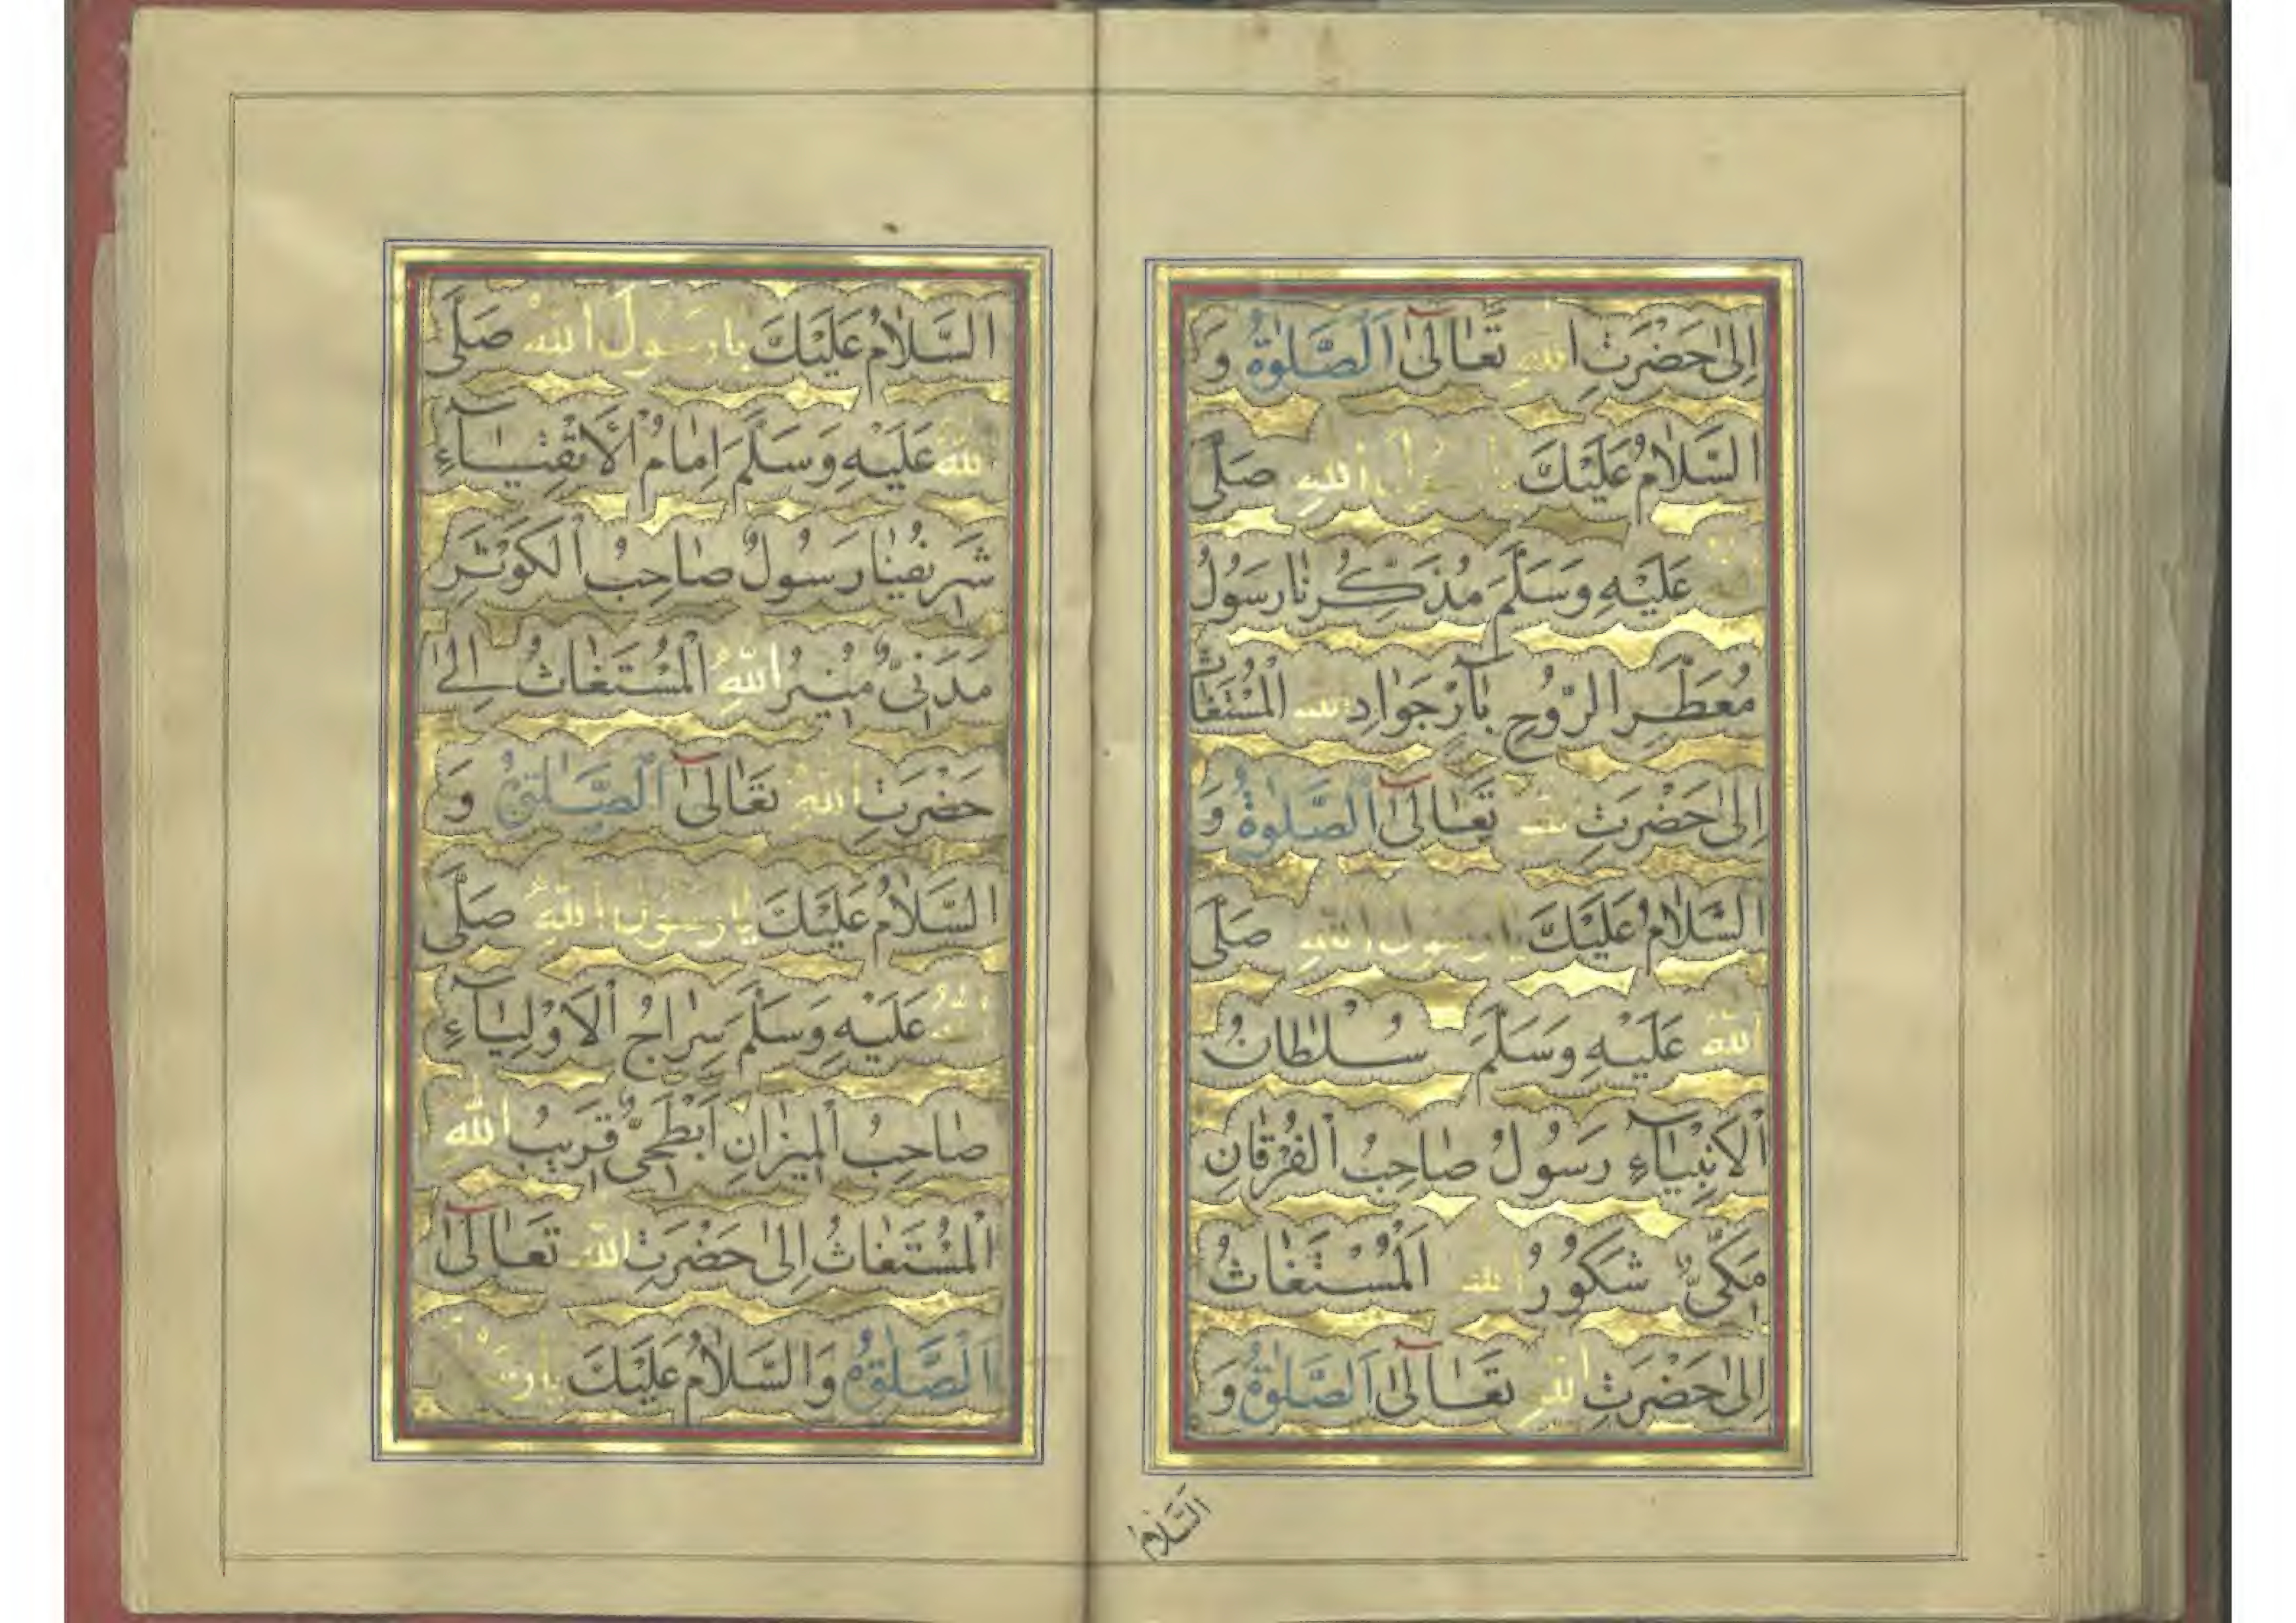 إِلىٰ حَضْرَتِ اللهِ تَعَالىٰ اَلصَّلٰوةُ وَ
السَّلَامُ عَلَيْكَ يَا رَسُولَ اللهِ صَلَّى
اللهُ عَلَيْهِ وَسَلَّمَ مُذَكِّرُنَا رَسُولُ
مُعَطَّرِ الرُّوحِ جَوَادِ اللهِ المُسْتَغَاثُ
إِلىٰ حَضْرَتِ اللهِ تَعَالىٰ اَلصَّلٰوةُ وَ
السَّلَامُ عَلَيْكَ يَا رَسُولَ اللهِ صَلَّى
اللهُ عَلَيْهِ وَسَلَّمَ سُلْطَانُ
الْاَنْبِيَآءِ رَسُولُ صَاحِبُ الْفُرْقَانِ
مَكِّىٌّ شَكُورُ اللهِ اَلْمُسْتَغَاثُ
إِلىٰ حَضْرَتِ اللهِ تَعَالىٰ اَلصَّلٰوةُ وَ
السَّلَامُ
السَّلَامُ عَلَيْكَ يَا رَسُولَ اللهِ صَلَّى
اللهُ عَلَيْهِ وَسَلَّمَ اِمَامُ الْاَتْقِيَآءِ
شَرِيفُنَا رَسُولُ صَاحِبُ الْكَوْثَرِ
مَدَنِىٌّ مُنِيرُ اللهِ الْمُسْتَغَاثُ اِلىٰ
حَضْرَتِ اللهِ تَعَالىٰ اَلصَّلٰوةُ وَ
السَّلَامُ عَلَيْكَ يَا رَسُولَ اللهِ صَلَّى
اللهُ عَلَيْهِ وَسَلَّمَ سِرَاجُ الْاَوْلِيَآءِ
صَاحِبُ الْمِيزَانِ اَبْطَحِىٌّ قَرِيبُ اللهِ
الْمُسْتَغَاثُ اِلىٰ حَضْرَتِ اللهِ تَعَالىٰ
اَلصَّلٰوةُ وَالسَّلَامُ عَلَيْكَ يَا رَسُولَ